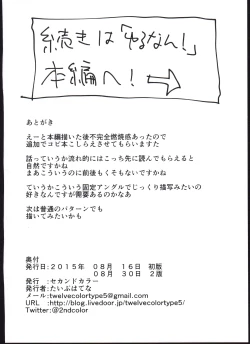 続きは「ゆるなん!」
本編へ!→
あとがき
えーと本編描いた後不完全燃焼感あったので
追加でコピ本こしらえさせてもらいますた
話っていうか流れ的にはこっち先に読んでもらえると
自然ですかね
まあこういうのに前後もくそもないですかね
ていうかこういう固定アングルでじっくり描写みたいの
好きなんですが需要あるのかなあ
次は普通のパターンでも
描いてみたいかも
奥付
発行日:2015年 08月 16日 初版
08月 30日 2版
発行 :セカンドカラー
発行者:たいぷはてな
メール:twelvecolortype5@gmail.com
URL :http://blog.livedoor.jp/twelvecolortype5/
Twitter:@2ndcolor